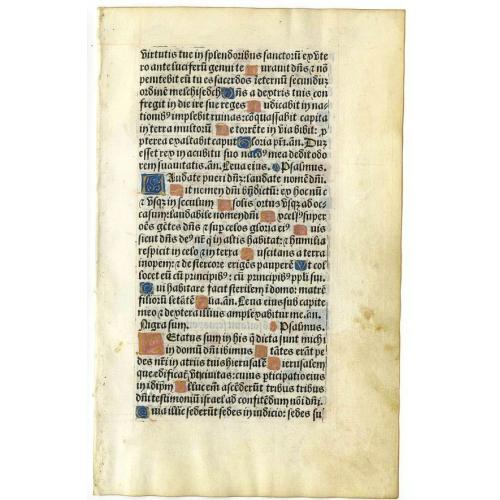 virtutis tue in splendoribus sanctorū ex vte
ro ante luciferū genui te Iurauit dn̄s & nō
penitebit eū tu es sacerdos īeternū secunduʒ
ordinē melchisedech Dn̄s a dextris tuis con
fregit in die ire sue reges Iudicabit in na-
tionibꝰ implebit ruinas: cōquassabit capita
in terra multorū De torrēte in via bibit: ꝓ
pterea exaltabit caput Gloria pr̄i. an̄. Duʒ
esset rex in acubitu suo nardꝰ mea dedit odo
rem suauitatis. an̄. Leua eius. Psalmus.
LAudate pueri dn̄ʒ: laudate nomē dn̄i.
Sit nomen dn̄i bn̄dictū: ex hoc nūc
& vsqꝫ in seculum A solis ortus vsqꝫ ad oc-
casum: laudabile nomen dn̄i Excelsꝰ super
oēs gētes dn̄s & sup celos gloria eiꝰ Quis
sicut dn̄s deꝰ nr̄ q̄ in altis habitat: & humilia
respicit in celo & in terra Suscitans a terra
inopem: & de stercore erigēs pauperē Vt col
locet eū cū principibꝰ: cū principibꝰ ppli sui.
Qui habitare facit sterilem ī domo: matrē
filiorū letātē Glia. an̄. Leua eius sub capite
meo & dextera illius amplexabitur me. an̄.
Nigra sum. Psalmus.
LEtatus sum in his q̄ dicta sunt michi
in domū dn̄i ibimus Stātes erāt pe
des nr̄i in atriis tuis hierusalē Hierusalem
que edificat̄ vt ciuitas: cuius pticipatio eius
in idip̄m Illuc em̄ ascēderūt tribus tribus
dn̄i testimoniū israel ad confitēdum noi dn̄i.
Quia illic sederūt sedes in iudicio: sedes su